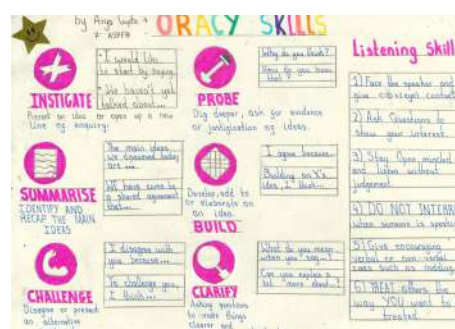 by Anya Gupta
ORACY SKILLS
INSTIGATE
Present an idea or open up a new
line of enquiry.
I would like
to start by saying
We haven't yet
talked about...
PROBE
Dig deeper, ask for evidence
or justification of ideas.
Why do you think?
How do you know
that?
SUMMARISE
IDENTIFY AND
RECAP THE MAIN
IDEAS
The main ideas
we covered today
are ...
that...
Develop, add to
or elaborate on
an idea.
BUILD
I agree because...
Building on X's
idea, I think...
CHALLENGE
Disagree or present
an alternative
I disagree with
you because...
To challenge you,
I think...
CLARIFY
Asking questions
to make things
clearer and
What do you mean
when you say...?
Can you explain a
bit more about...?
Listening Skill
1) Face the speaker and
give eye contact
2) Ask Questions to
show your interest.
3) Stay Open minded
and listen without
judgement.
4) DO NOT INTERR
when someone is speakin
5) Give encouraging
verbal or non-verbal
cues such as nodding
6) TREAT others the
way YOU want to
treated.